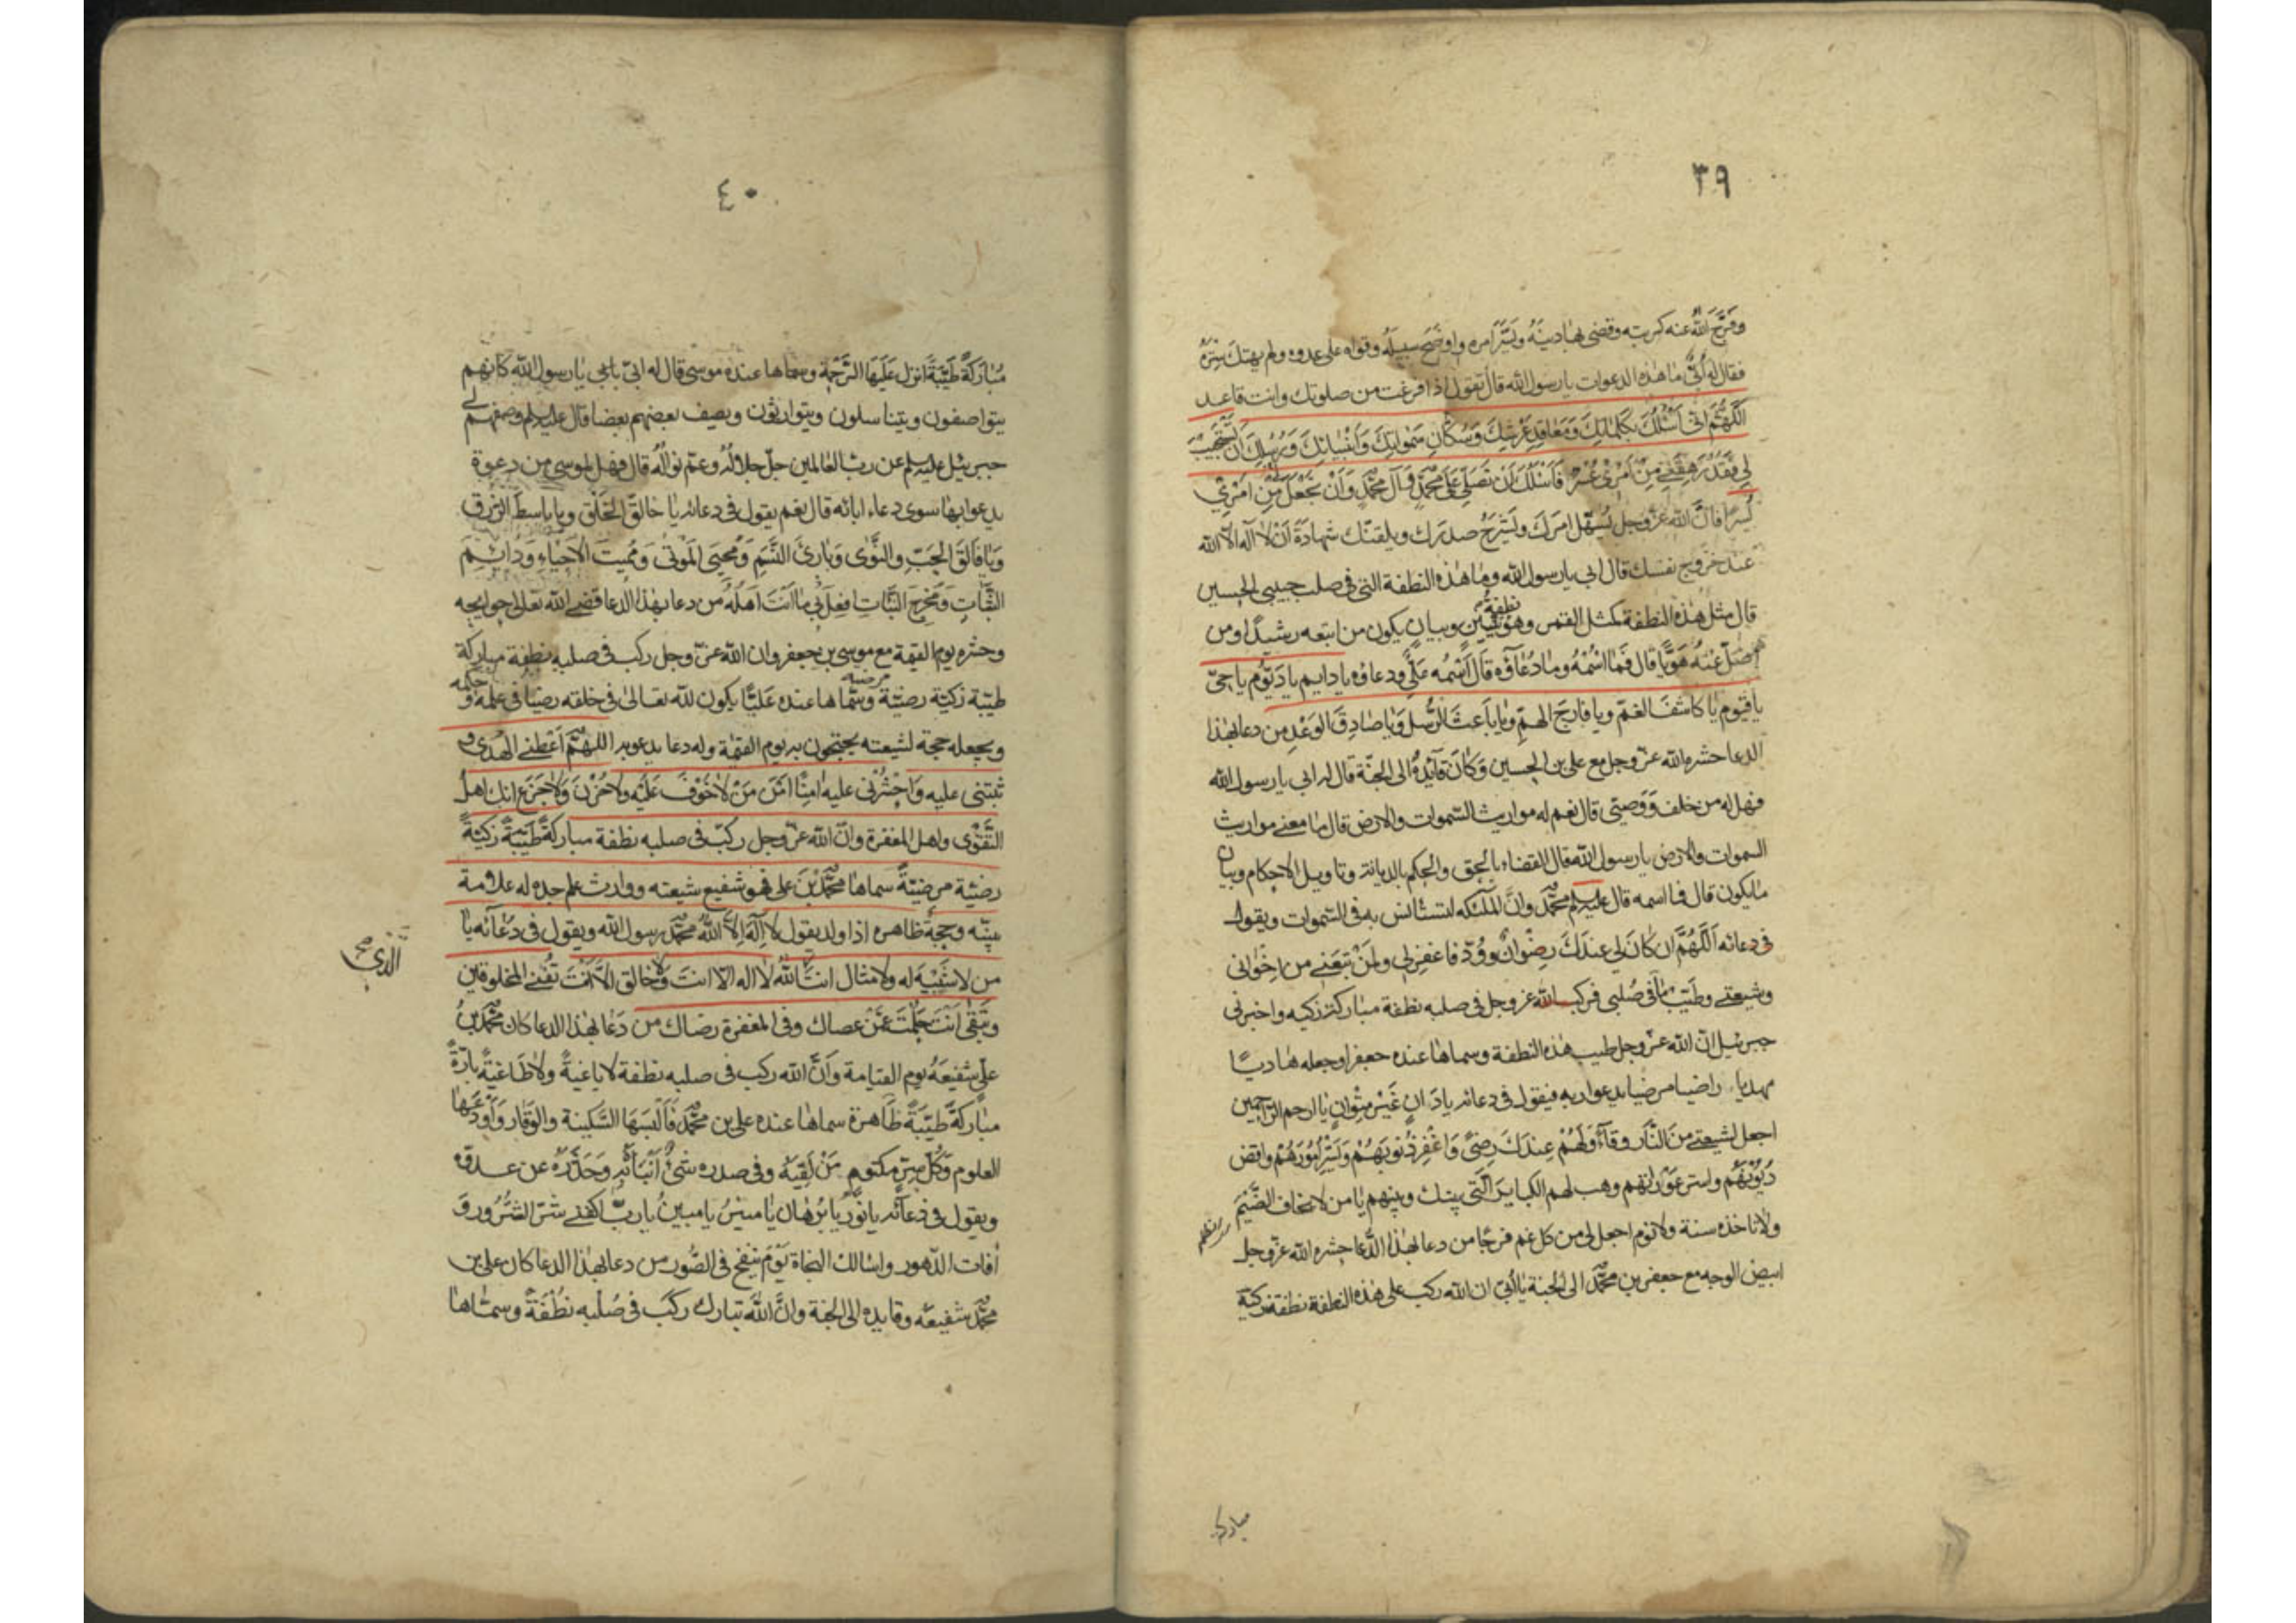 ٣٩
وفرّج الله عنه كربته وقضى بها دينه ويسّر امره واوضح سبيله وقواه على عدوه ولم يهتك ستره
فقال له اُبىّ ما هذه الدعوات يا رسول الله قال تقول اذا فرغت من صلوتك وانت قاعد
اللّهُمَّ انى اَسْئَلُكَ بِكَلِماتِكَ وَمَعاقِدِ عَرْشِكَ وَسُكّانِ سَمٰواتِكَ وَاَنْبِيائِكَ وَرُسُلِكَ اَنْ تَسْتَجيبَ
لى فَقَدْ رَهِقَنى مِنْ اَمْرى عُسْرٌ فَاَسْئَلُكَ اَنْ تُصَلِّىَ عَلى مُحَمَّدٍ وَآلِ مُحَمَّدٍ وَاَنْ تَجْعَلَ مِنْ اَمْرى
يُسْرًا فانّ الله عزّ وجل يُسهّل امرَك ويَشْرَحُ صدرَك ويلقنك شهادَةَ اَنْ لا اله الا الله
عند خروج نفسك قال ابى يا رسول الله وما هذه النطفة التى فى صلب حبيبى الحسين
قال مثل هذه النطفة كمثل القمر وهو نطفة تبيين وبيان يكون من اتبعه رشيدًا ومن
ضلّ عنه هَوِيًّا قال فَمَا اسْمُهُ وما دُعاؤه قال اسمه عَلىّ ودعاؤه يا دايم يا ديّوم يا حىّ
يا قيّوم يا كاشفَ الغمّ ويا فارجَ الهمّ ويا باعثَ الرُّسُلِ ويا صادِقَ الوَعْدِ من دعا بهذا
الدعا حشره الله عزّ وجل مع على بن الحسين وكان قائده الى الجنّة قال له ابى يا رسول الله
فهل له من خلف ووصىّ قال نعم له مواريث السّموات والارض قال ما معنى مواريث
السموات والارض يا رسول الله قال القضاء بالحق والحكم بالديانة وتاويل الاحكام وبيان
ما يكون قال فما اسمه قال عليه السلم محمّد وانّ الملئكه لتستانس به فى السّموات ويقول
فى دعائه اَللّهُمَّ ان كانَ لى عندَكَ رِضْوانٌ وَوُدّ فاغفرلى ولمن تبعنى من اخوانى
وشيعتى وطيّب ما فى صُلبى فركب الله عز وجل فى صلبه نطفة مباركة زكيه واخبرنى
جبرئيل انّ الله عزّ وجل طيب هذه النطفة وسماها عنده جعفرا وجعله هاديًا
مهديا راضيا مرضيا يدعوا ربه فيقول فى دعائه يا دانٍ غَيْرَ متوانٍ يا ارحم الراحمين
اجعل لشيعتى من النّار وقآءً ولَهُمْ عِندَكَ رِضىً وَاغْفِرْ ذُنوبَهُمْ وَيَسِّرْ اُمُورَهُمْ واقض
دُيُونَهُم واستر عَوْراتهم وهب لهم الكباير الّتى بينك وبينهم يا من لا يخاف الضَّيْمَ
ولا تاخذه سنة ولا نوم اجعل لى من كل غم فرجًا من دعا بهذا الدُّعا حشره الله عزّ وجل
ابيض الوجه مع جعفر بن محمّد الى الجنة يا اُبىّ ان الله ركب على هذه النطفة نطفة زكيّة
مباركة
٤٠
مُبارَكَةً طَيِّبَةً انزل عَلَيْهَا الرَّحْمة وسمّاها عنده موسى قال له ابىّ بابى يا رسول الله كانهم
يتواصفون ويتناسلون ويتوارثون ويصف بعضهم بعضا قال عليه السلم وصفهم لى
جبرئيل عليه السلم عن ربّ العالمين جلّ جلالُهُ وعمّ نوالُه قال فهل لموسى من دعوة
يدعوا بها سوى دعاء ابائه قال نعم يقول فى دعائه يا خالقَ الخَلْقِ ويا باسط الرّزق
وَيا فالِقَ الحَبِّ والنَّوٰى وَبارِئَ النَّسَمِ وَمُحيىَ الْمَوْتٰى وَمُميتَ الاَحْياءِ وَدايِمَ
الثَّباتِ وَمُخْرِجَ النَّباتِ اِفعل بى ما اَنْتَ اَهْلُهُ من دعا بهذا الدعا قضى الله تعالى حوايجه
وحشره يوم القيمة مع موسى بن جعفر وان الله عزّ وجل ركب فى صلبه نطفة مباركة
طيّبة زكيّة رضيّة مرضيه وسمّاها عنده عليًّا يكون لله تعالىٰ فى خلقه رضيّا فى علمه و حكمه
ويجعله حجة لشيعته يحتجّون به يوم القيمة وله دعا يدعو به اللهمّ اَعْطنى الهُدى و
ثبّتنى عليه وَاحْشُرْنى عليه امِنًا اَمْنَ مَنْ لا خَوْفَ عَلَيْهِ ولا حُزْنَ وَلا جَزَع انك اهل
التّقْوٰى واهل المغفرة وانّ الله عزّ وجل ركّب فى صلبه نطفة مباركةً طَيّبَةً زكيّةً
رضيّة مرضيّةً سماها محمّد بن على فهو شفيع شيعته ووارث علم جده له علامة
بيّنه وحجةٌ ظاهرة اذا ولد يقول لا اِلهَ اِلّا اللهُ محمّد رسول الله ويقول فى دعائه يا
من لا شبيه له ولا مثال انتَ اللهُ لا اله الّا انتَ ولا خالق الّا اَنْتَ تُفنى المخلوقين
الّذى صح
وتَبْقى اَنْتَ حَلُمْتَ عَمَّن عصاك وفى المغفرة رضاك من دَعا بهذا الدعا كان محمّد بنُ
علىّ شفيعَهُ يوم القيامة واَنَّ الله ركب فى صلبه نطفة لا باغيةً ولا طاغيةً بارّةً
مُبارَكَةً طيّبَةً طَاهرة سماها عنده على بن محمّد فَاَلْبَسَهَا السَّكينة والوَقار وَاَوْدَعَها
العلوم وَكُلَّ سِرّ مكتوم مَنْ لَقِيَهُ وفى صدره شىءٌ اَنْبَاَهُ بِهِ وَحَذّرَهُ عن عدوّه
ويقول فى دعائه يا نُورُ يا بُرْهان يا مُنيرُ يا مبينُ يا ربّ اكفنى شرّ الشُّرُورِ وَ
افات الدّهور واسالك النجاة يَوْمَ يُنْفَخُ فى الصُّور من دعا بهذا الدعا كان على بن
محمّد شفيعه وقايده الى الجنة وانَّ اللهَ تبارك ركَبَ فى صُلْبِه نطْفَةً وسمّاها